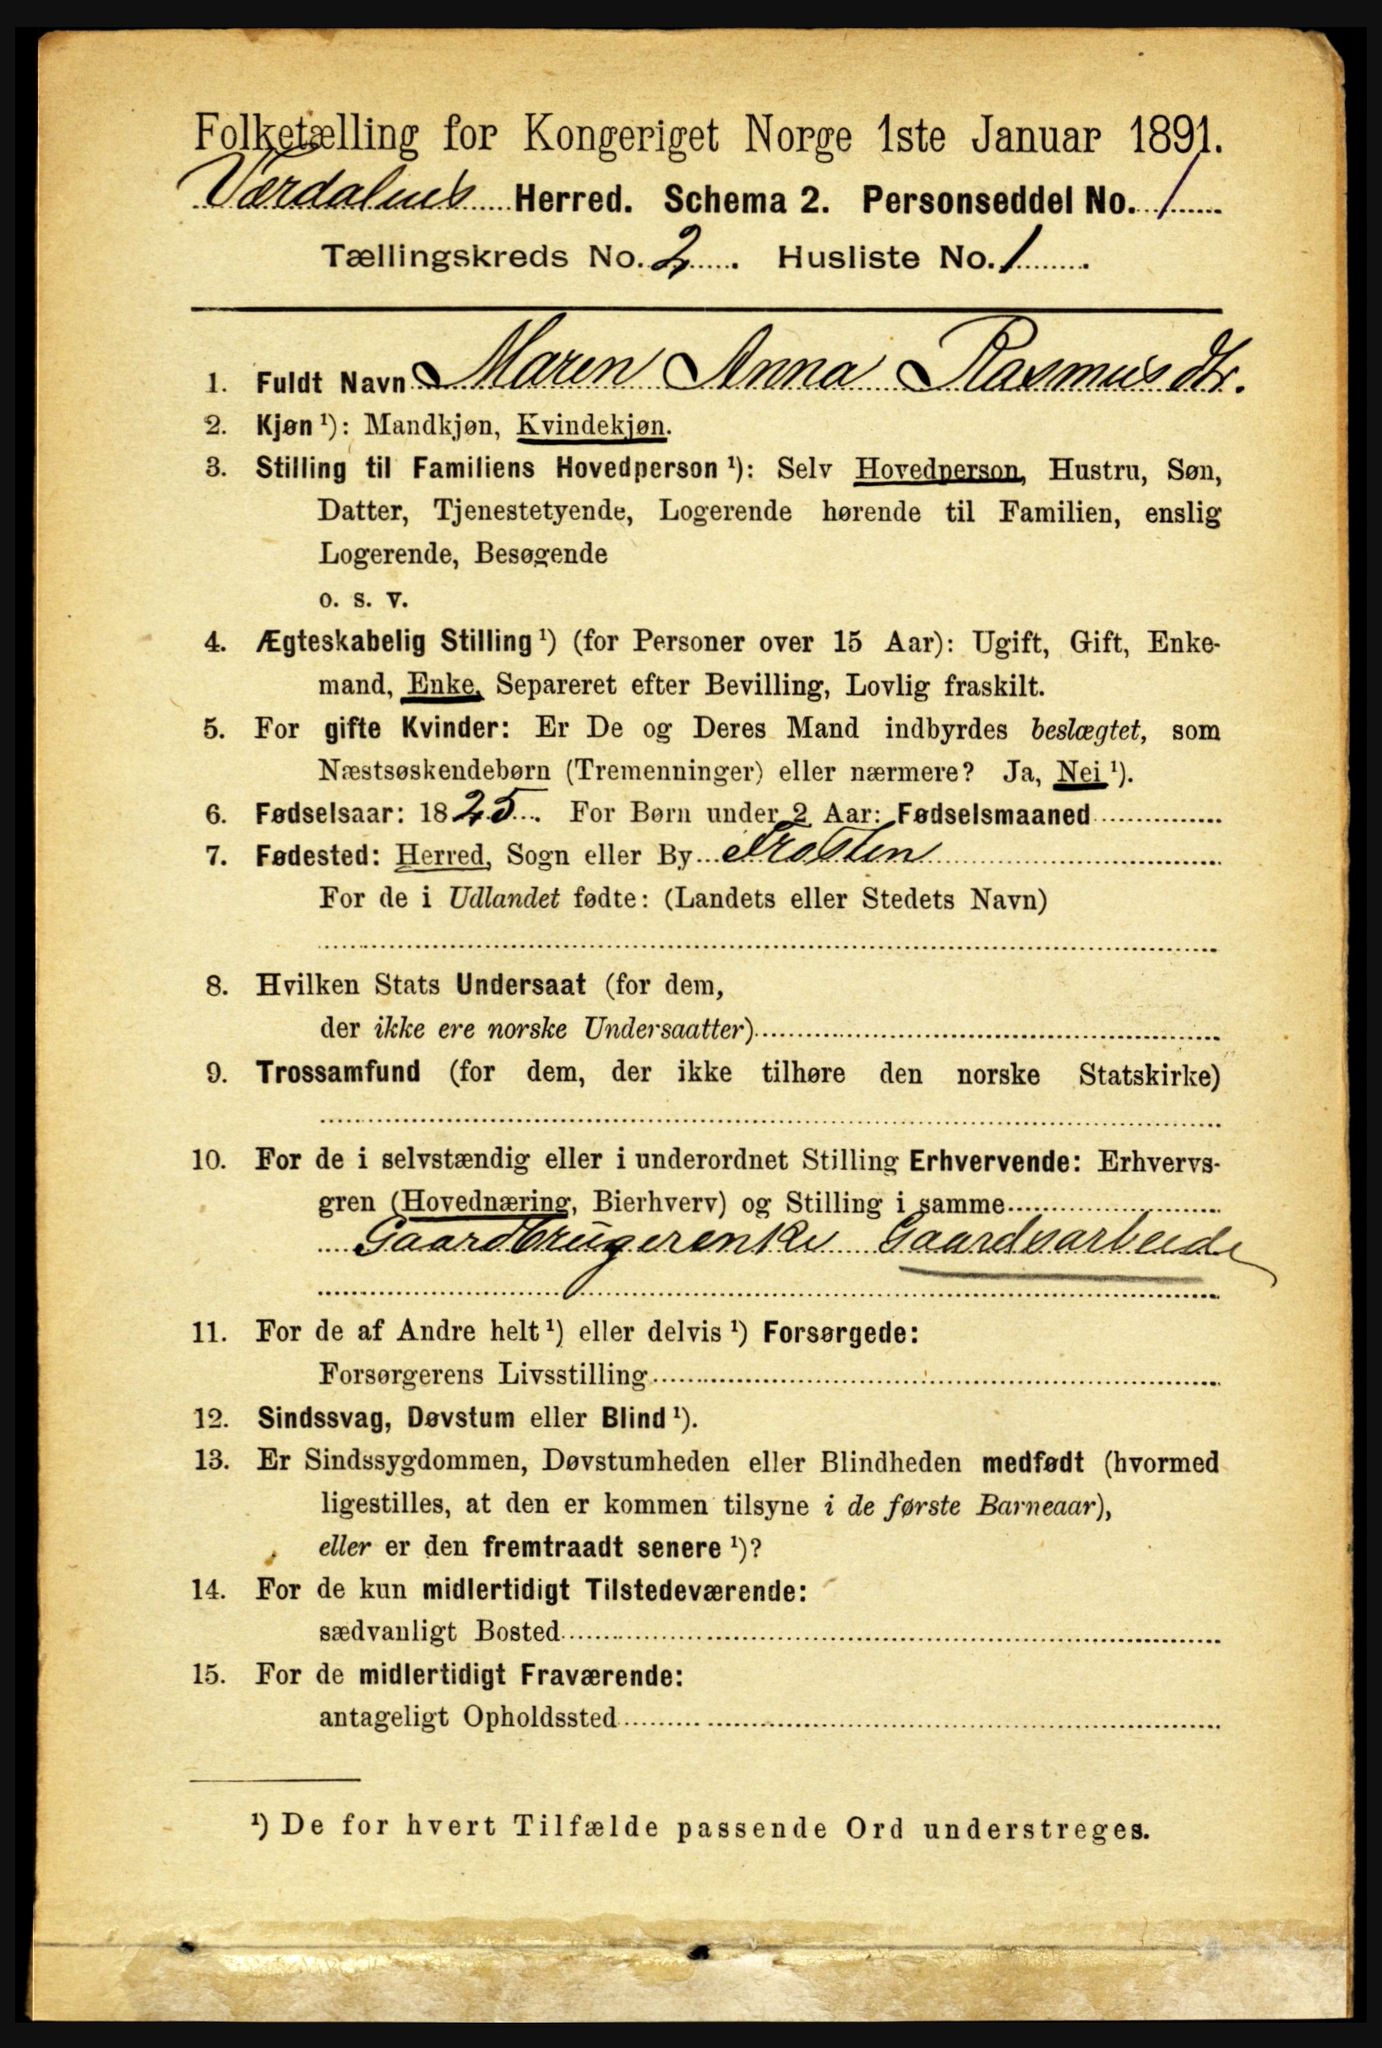 Folketælling for Kongeriget Norge 1ste Januar 1891.
Værdalens Herred. Schema 2. Personseddel No. 1
Tællingskreds No. 2. Husliste No. 1
1. Fuldt Navn Maren Anna Rasmusdtr.
2. Kjøn ¹): Mandkjøn, Kvindekjøn.
3. Stilling til Familiens Hovedperson ¹): Selv Hovedperson, Hustru, Søn,
Datter, Tjenestetyende, Logerende hørende til Familien, enslig
Logerende, Besøgende
o. s. v.
4. Ægteskabelig Stilling ¹) (for Personer over 15 Aar): Ugift, Gift, Enke-
mand, Enke, Separeret efter Bevilling, Lovlig fraskilt.
5. For gifte Kvinder: Er De og Deres Mand indbyrdes beslægtet, som
Næstsøskendebørn (Tremenninger) eller nærmere? Ja, Nei ¹).
6. Fødselsaar: 1825. For Børn under 2 Aar: Fødselsmaaned
7. Fødested: Herred, Sogn eller By Frosten
For de i Udlandet fødte: (Landets eller Stedets Navn)
8. Hvilken Stats Undersaat (for dem,
der ikke ere norske Undersaatter)
9. Trossamfund (for dem, der ikke tilhøre den norske Statskirke)
10. For de i selvstændig eller i underordnet Stilling Erhvervende: Erhvervs-
gren (Hovednæring, Bierhverv) og Stilling i samme
Gaardbrugerenke Gaardsarbeide
11. For de af Andre helt ¹) eller delvis ¹) Forsørgede:
Forsørgerens Livsstilling
12. Sindssvag, Døvstum eller Blind ¹).
13. Er Sindssygdommen, Døvstumheden eller Blindheden medfødt (hvormed
ligestilles, at den er kommen tilsyne i de første Barneaar),
eller er den fremtraadt senere ¹)?
14. For de kun midlertidigt Tilstedeværende:
sædvanligt Bosted
15. For de midlertidigt Fraværende:
antageligt Opholdssted
¹) De for hvert Tilfælde passende Ord understreges.